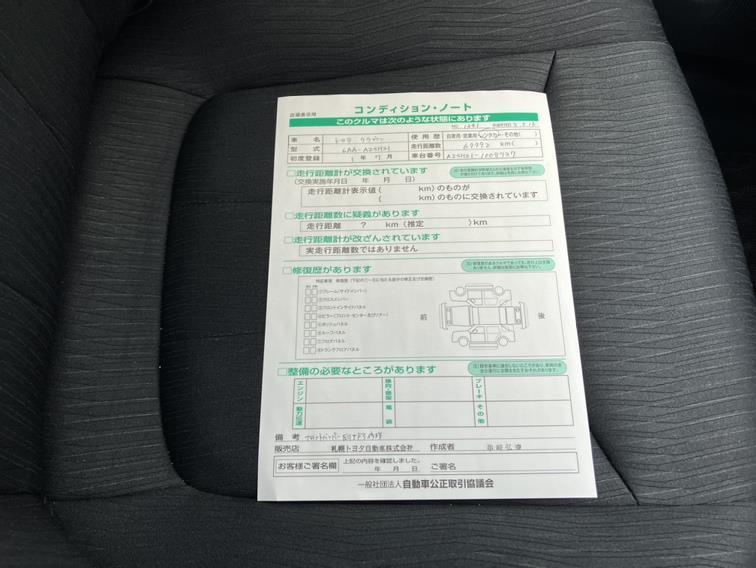 コンディション・ノート
店頭展示用
このクルマは次のような状態にあります
車 名 トヨタ クラウン 使 用 歴 自家用・営業用・レンタカー・その他( )
型 式 6AA-AZSH21 走行距離数 69992 km( )
初度登録 年 月 車台番号 AZSH21-1008727
□走行距離計が交換されています
(交換実施年月日 年 月 日)
走行距離計表示値( km)のものが
( km)のものに交換されています
□走行距離数に疑義があります
走行距離 ? km(推定 )km
□走行距離計が改ざんされています
実走行距離数ではありません
□修復歴があります
①フレーム(サイドメンバー)
②クロスメンバー
③フロントインサイドパネル
④ピラー(フロント・センター及びリア)
⑤ダッシュパネル
⑥ルーフパネル
⑦フロアパネル
⑧トランクフロアパネル
前 後
□整備の必要なところがあります
エンジン ブレーキ
動力伝達 電装 その他
備 考
販売店 札幌トヨタ自動車株式会社 作成者
お客様ご署名欄 上記の内容を確認しました。
年 月 日 ご署名
一般社団法人 自動車公正取引協議会